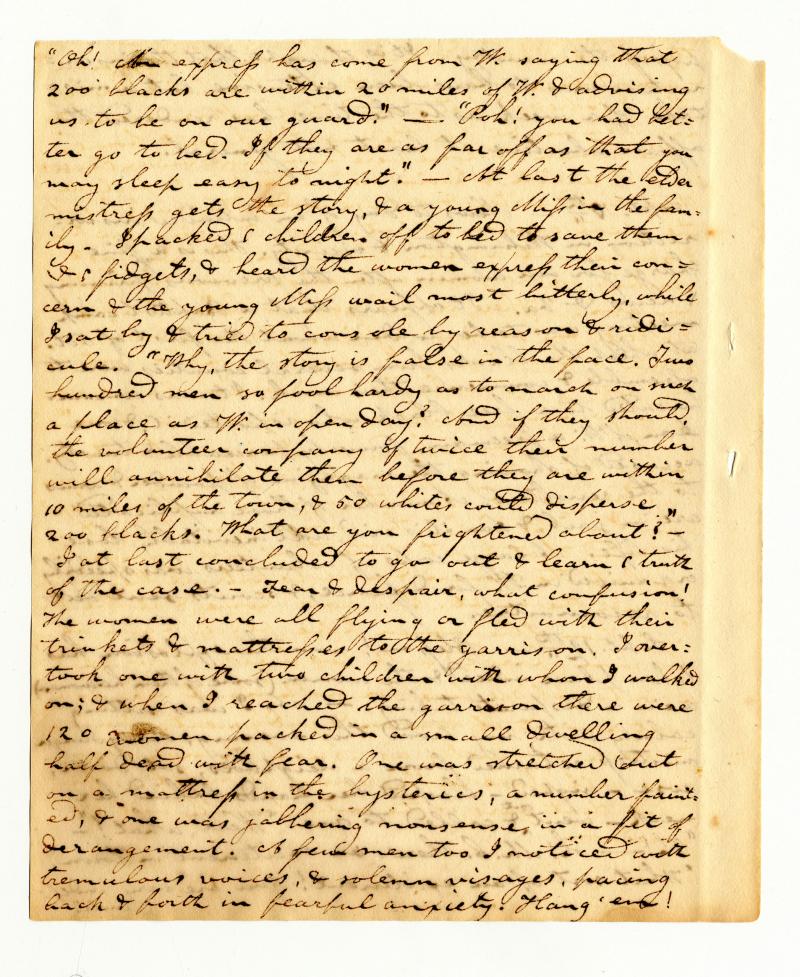 "Oh! An express has come from W. saying that
200 blacks are within 20 miles of W. & advising
us to be on our guard." — "Poh! you had bet=
ter go to bed. If they are as far off as that you
may sleep easy to night." — At last the elder
mistress gets the story, & a young Miss in the fam=
ily. I packed ( children off to bed to save them
( fidgets, & heard the women express their con=
cern & the young Miss wail most bitterly, while
I sat by & tried to console by reason & ridi=
cule. "Why, the story is false in the face. Two
hundred men so foolhardy as to march on such
a place as W. in open day? And if they should,
the volunteer company of twice their number
will annihilate them before they are within
10 miles of the town, & 50 whites could disperse
200 blacks. What are you frightened about?" —
I at last concluded to go out & learn ( truth
of the case. — Fear & despair, what confusion!
The women were all flying or fled with their
trinkets & mattresses to the garrison. I over=
took one with two children with whom I walked
on; & when I reached the garrison there were
120 women packed in a small dwelling
half dead with fear. One was stretched out
on a mattress in the hysterics, a number faint=
ed, & one was jabbering nonsense in a fit of
derangement. A few men too I noticed with
tremulous voices, & solemn visages, pacing
back & forth in fearful anxiety. Hang 'em!